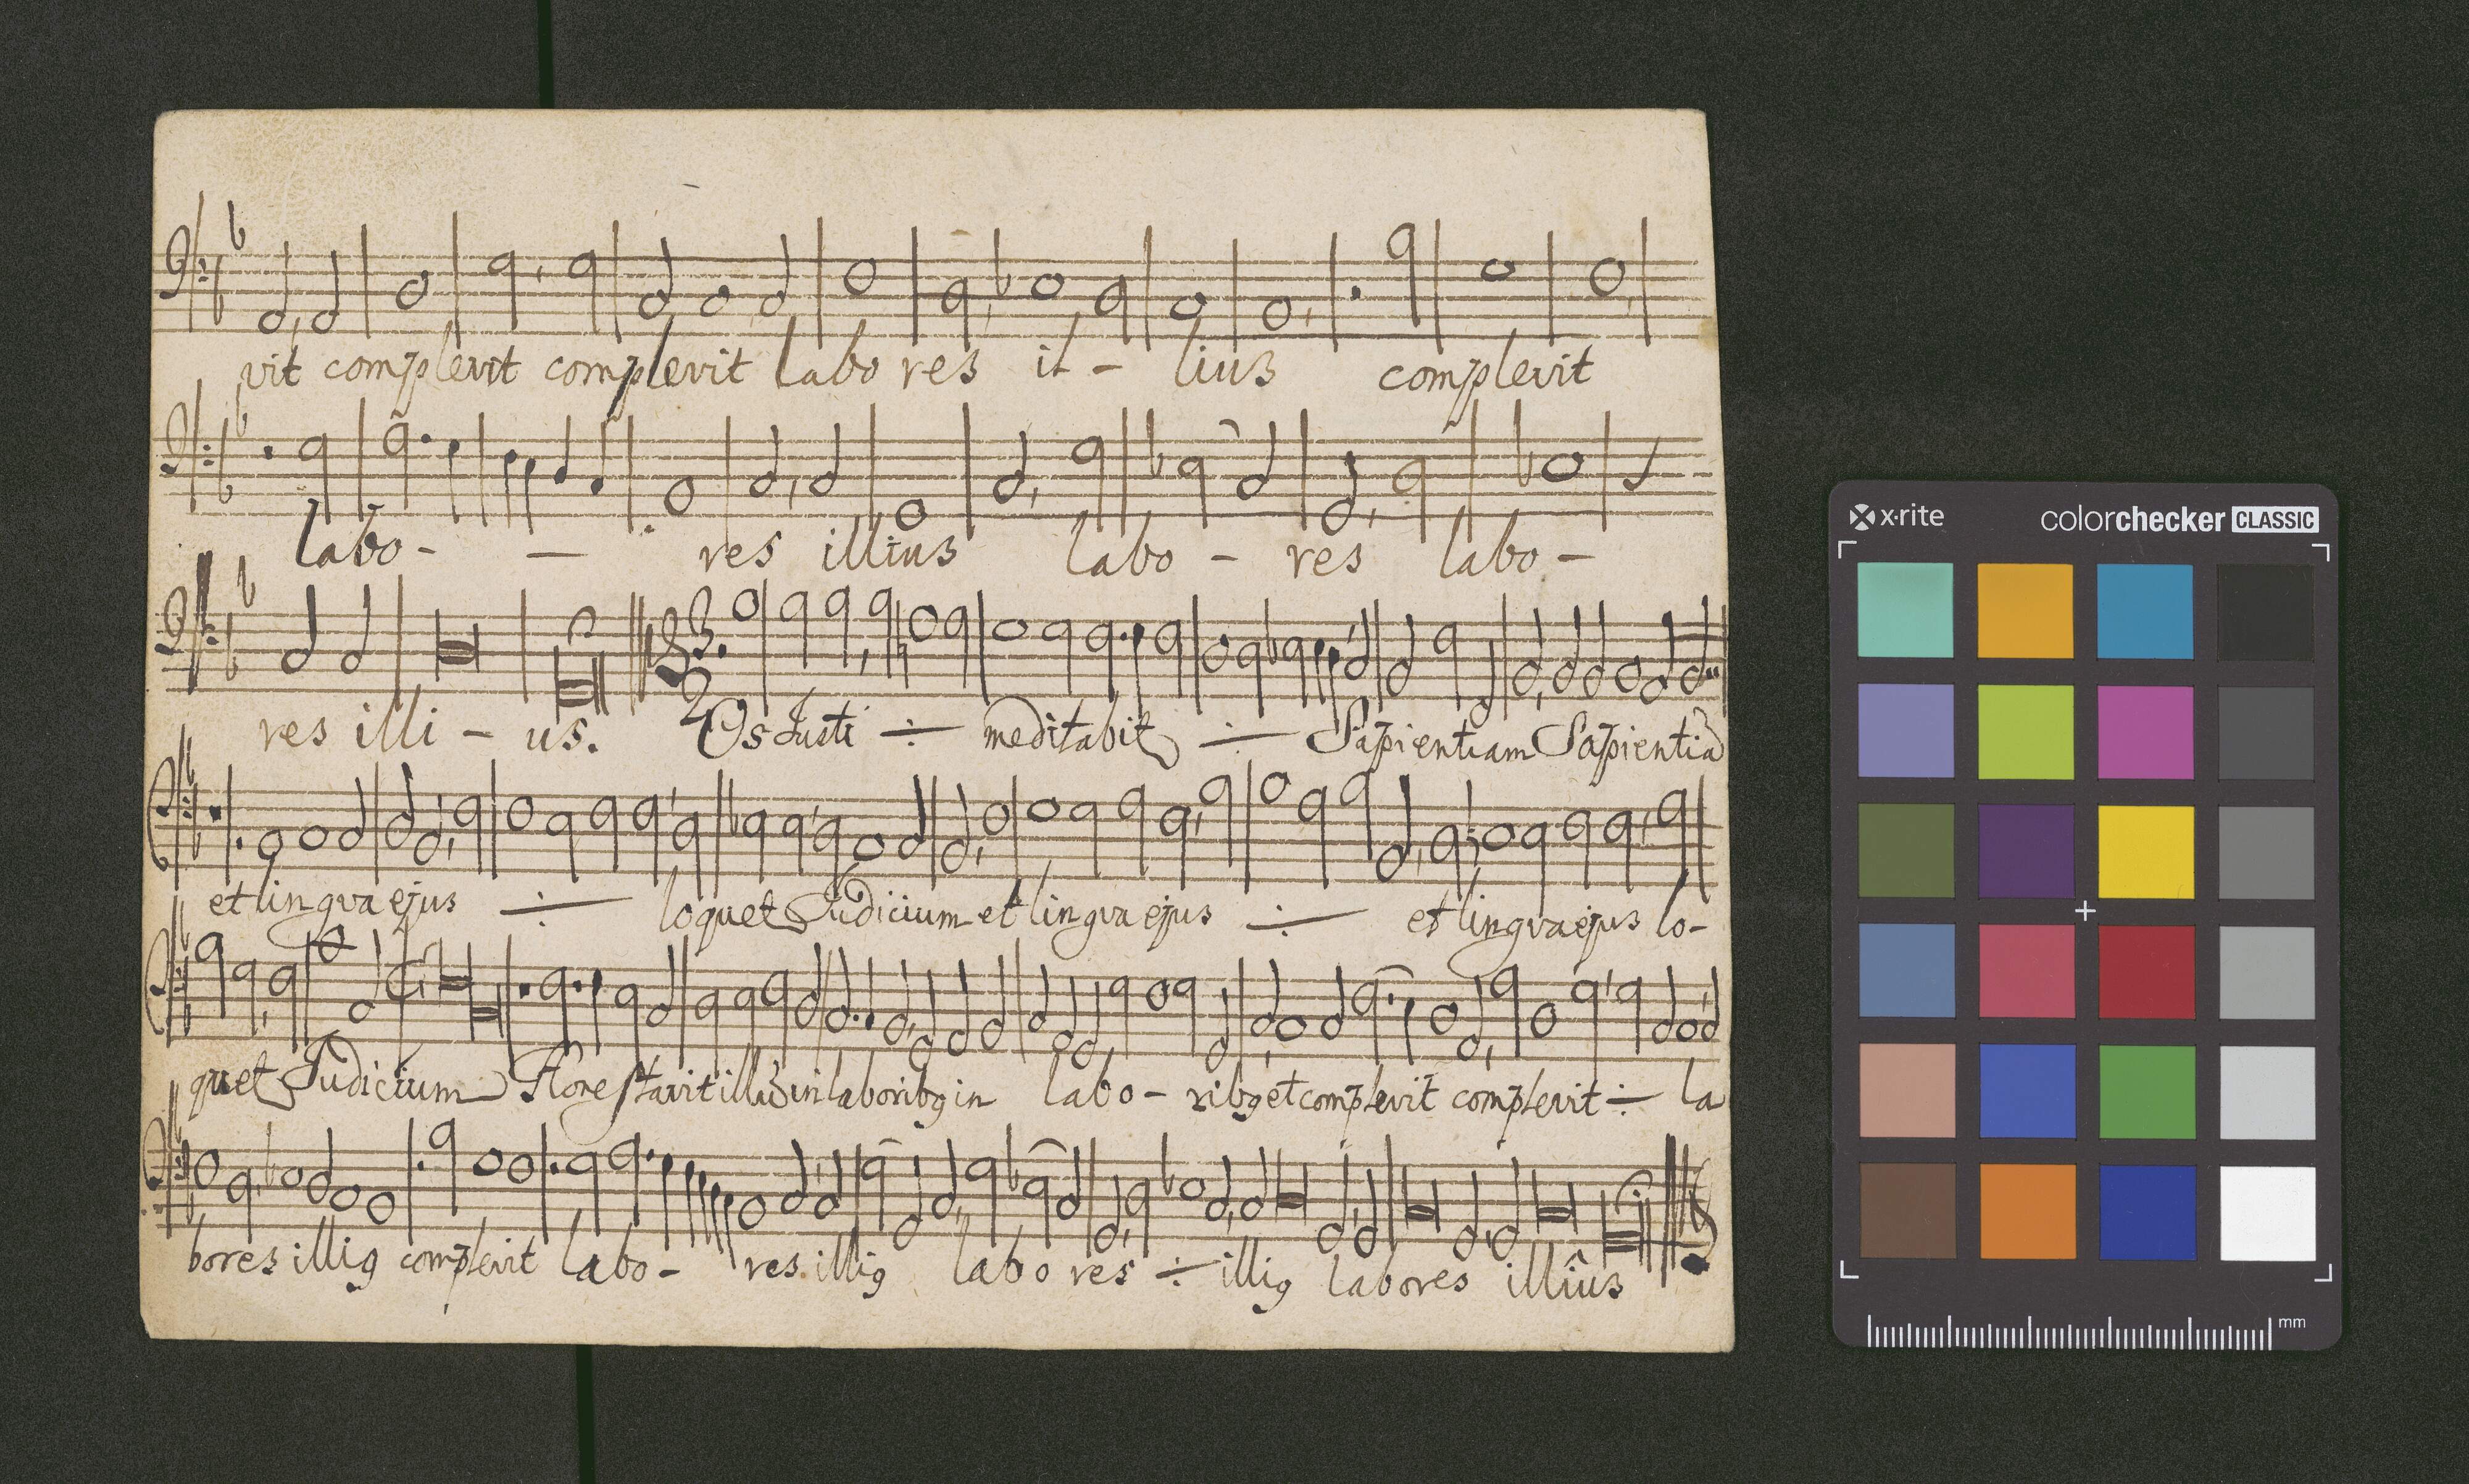 vit complevit complevit labo res il - lius complevit
labo - - res illius labo - res labo -
res illi - us. Os Justi ÷ meditabit ÷ Sapientiam Sapientiã
et lingva ejus ÷ loquet Judicium et lingva ejus ÷ et lingva ejus lo-
quet Judicium Honestavit in laboribꝫ in labo - ribꝫ et complevit complevit ÷ la
bores illiꝫ complevit labo - res illiꝫ labo res ÷ illiꝫ labores illîus
x·rite colorchecker CLASSIC
mm